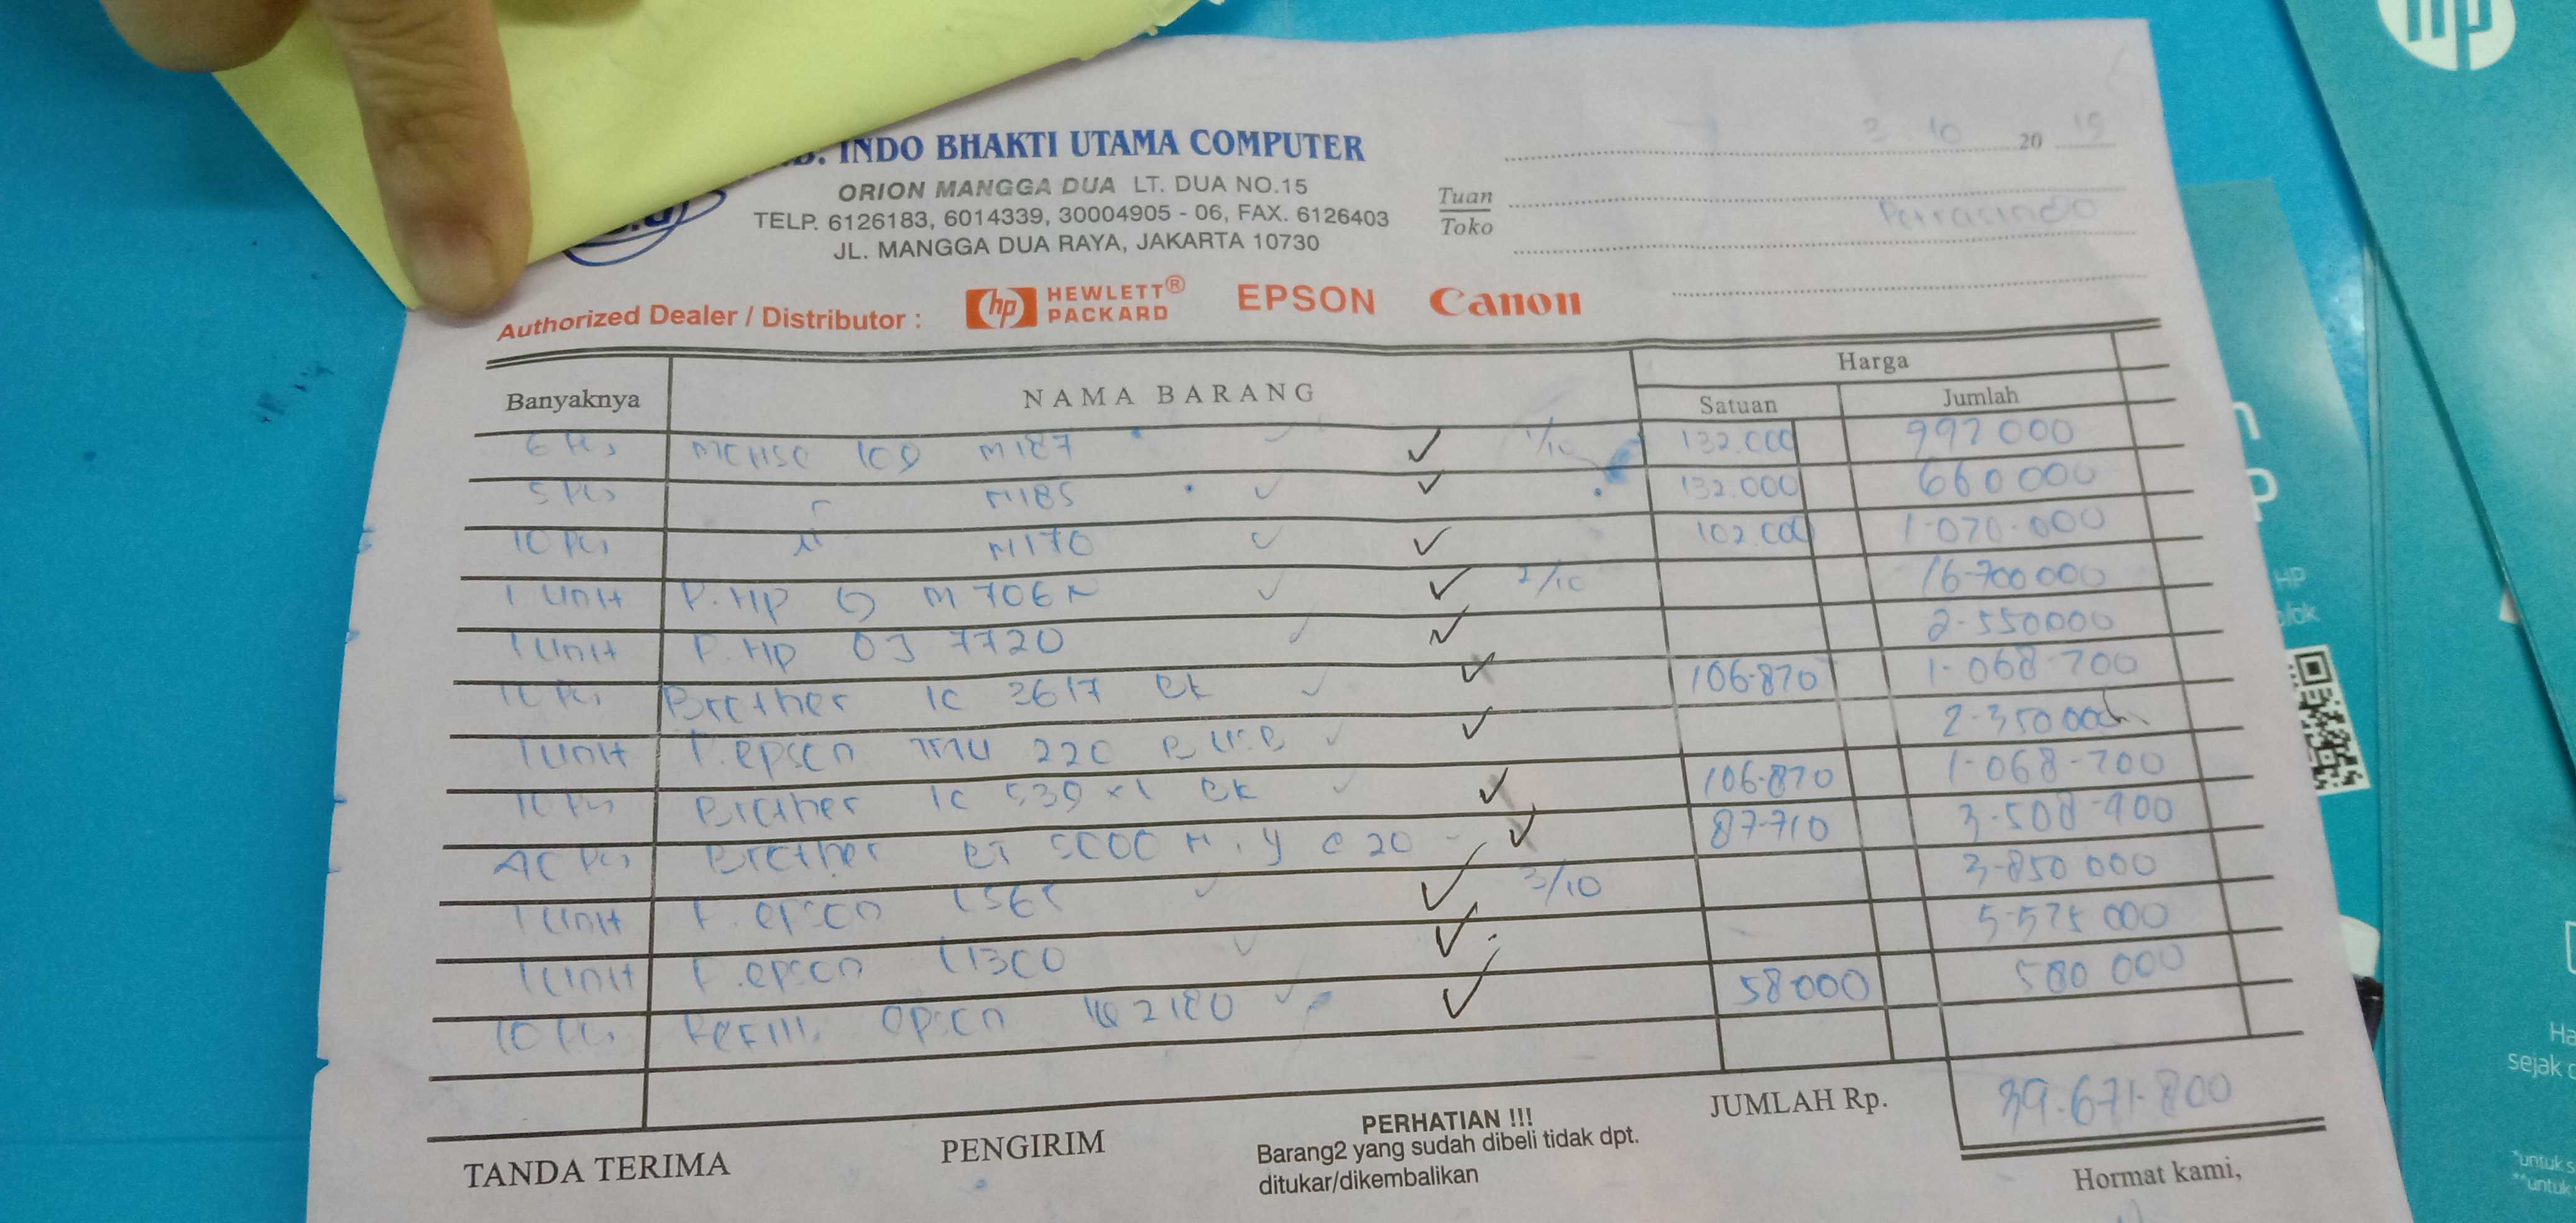 INDO BHAKTI UTAMA COMPUTER
ORION MANGGA DUA LT. DUA NO.15
TELP. 6126183, 6014339, 30004905 - 06, FAX. 6126403
JL. MANGGA DUA RAYA, JAKARTA 10730
3 . 10 20 19
Tuan
Toko
Authorized Dealer / Distributor : hp HEWLETT® PACKARD EPSON Canon
Banyaknya NAMA BARANG Harga
Satuan Jumlah
6 Pcs M187 1/10 132.000 992 000
5 Pcs M185 132.000 660 000
10 Pcs M170 102.000 1.070.000
1 Unit P. HP M 706 N 2/10 16.700 000
1 Unit P. HP OJ 7720 2.550000
10 Pcs Brother LC 3617 BK 106.870 1.068.700
1 Unit P. epson TMU 220 B USB 2.350 000
10 Pcs Brother LC 539 XL BK 106.870 1.068.700
40 Pcs Brother BT 5000 M, Y @ 20 87.710 3.508.400
1 Unit P. epson L565 3/10 3.850 000
1 Unit P. epson L1300 5.575 000
10 Pcs Refill epson 2180 58000 580 000
JUMLAH Rp. 39.671.800
TANDA TERIMA
PENGIRIM
PERHATIAN !!!
Barang2 yang sudah dibeli tidak dpt.
ditukar/dikembalikan
Hormat kami,
HP
sejak
*untuk
**untuk